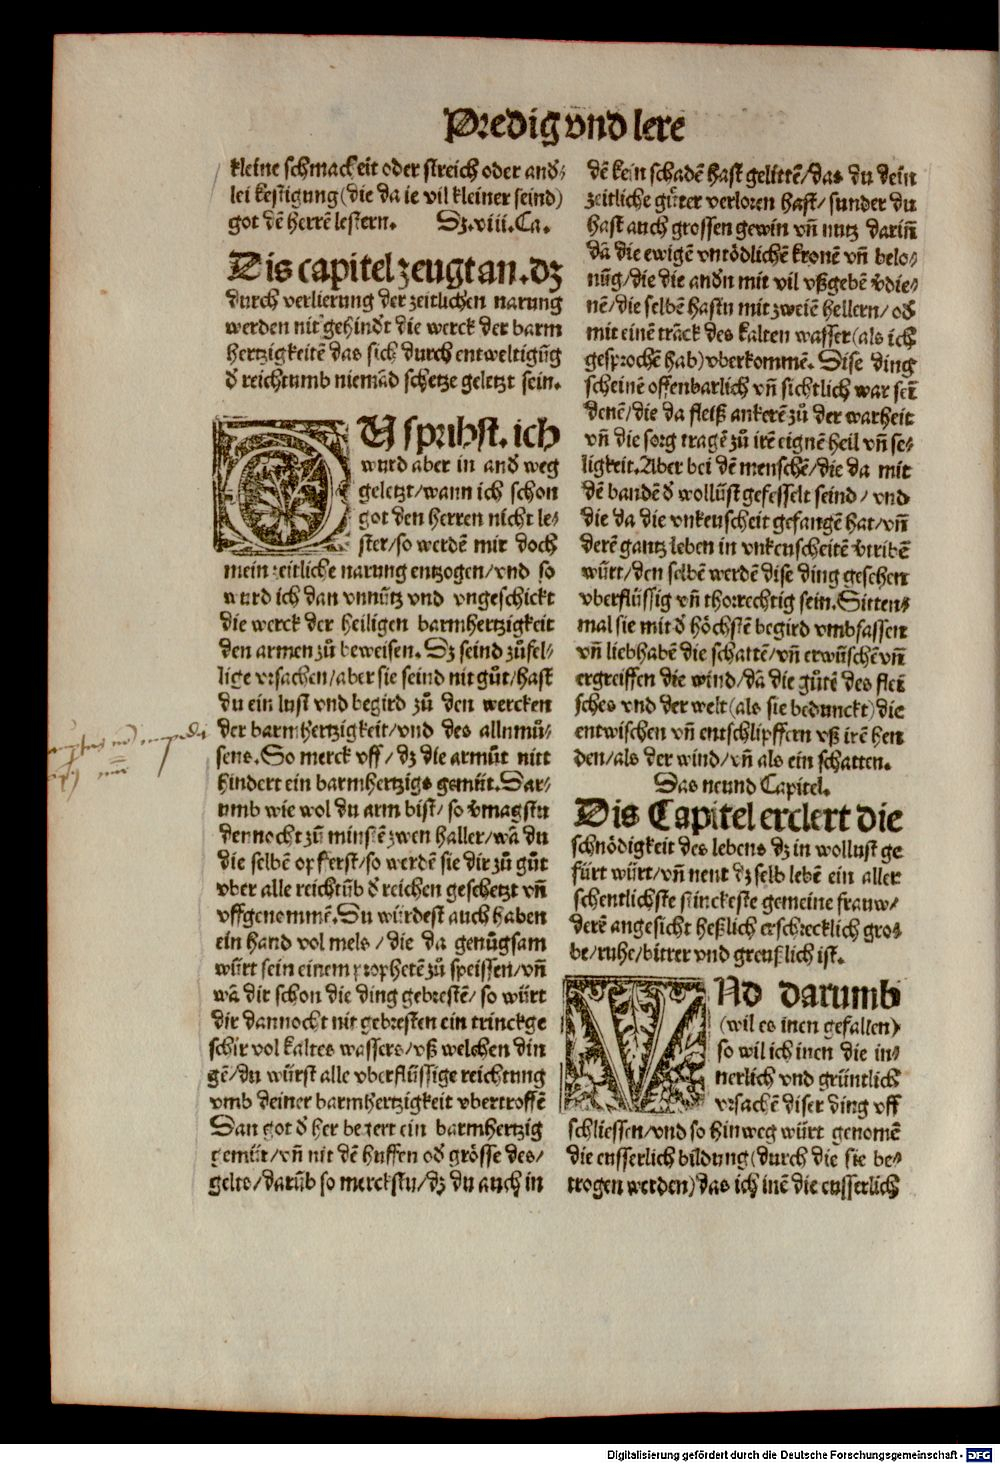 Predig vnd lere
kleine schmackeit oder streich oder and̄-
lei kestigung (die da ie vil kleiner seind)
got dē herrē lestern. Dz.viii.Ca.
Dis capitel zeugt an. dz
durch verlierung der zeitlichen narung
werden nit gehind̄t die werck der barm
hertzigkeitē das sich durch entweltigūg
d̄ reichtumb niemād schetze geletzt sein.
DV sprichst. ich
wurd aber in and̄ weg
geletzt/wann ich schon
got den herren nicht le-
ster/so werdē mir doch
mein zeitliche narung entzogen/vnd so
wurd ich dan vnnütz vnd vngeschickt
die werck der heiligen barmhertzigkeit
den armen zů beweisen. Dz seind zůfel-
lige vrsachen/aber sie seind nit gůt/hast
du ein lust vnd begird zů den wercken
der barmhertzigkeit/vnd des allmů-
sens. So merck vff/dz die armůt nitt
hindert ein barmhertzigs gemüt. Dar-
umb wie wol du arm bist/so v̄magstu
dennocht zů minstē zwen haller/wā du
die selben opfferst/so werdē sie dir zů gůt
vber alle reichtūb d̄ reichen geschetzt vn̄
vffgenommē. Du würdest auch haben
ein hand vol mels/die da genůgsam
würt sein einem prophetē zů speissen/vn̄
wā dir schon die ding gebrestē/so würt
dir dannocht nit gebresten ein trinckge
schir vol kaltes wassers/vß welchen din
gē/du würst alle vberflüssige reichtung
vmb deiner barmhertzigkeit vbertroffē
Dan got d̄ her begert ein barmhertzig
gemüt/vn̄ nit dē huffen od̄ grösse des/
gelts/darūb so merckstu/dz du auch in
dē kein schadē hast gelittē/das du dein
zeitliche gůter verloren hast/sunder du
hast auch grossen gewin vn̄ nutz darin̄
dā die ewigē vntödlichē kronē vn̄ belo-
nūg/die die and̄n mit vil vßgebē v̄die-
nē/die selbē hastu mit zweiē hellern/od̄
mit einē trāck des kalten wasser (als ich
gesprochē hab) vberkommē. Dise ding
scheinē offenbarlich vn̄ sichtlich war sei
denē/die da fleiß ankerē zů der warheit
vn̄ die sorg tragē zů irē eignē heil vn̄ se-
ligkeit. Aber bei dē menschē/die da mit
dē bandē d̄ wollüst gefesselt seind/vnd
die da die vnkeuscheit gefangē hat/vn̄
derē gantz leben in vnkeuscheitē v̄tribē
würt/den selbē werdē dise ding gesehen
vberflüssig vn̄ thorrechtig sein. Sitten-
mal sie mit d̄ höchstē begird vmbfassen
vn̄ liebhabē die schattē/vn̄ erwūschē vn̄
ergreiffen die wind/dā die gůtē des flei
sches vnd der welt (als sie bedunckt) die
entwischen vn̄ entschlipffern vß irē hen
den/als der wind/vn̄ als ein schatten.
Das neund Capitel.
Dis Capitel erclert die
schnödigkeit des lebens dz in wollust ge
fürt würt/vn̄ nent dz selb lebē ein aller
schentlichste stinckeste gemeine frauw/
derē angesicht heßlich erschrecklich gros-
be/ruhe/bitter vnd greußlich ist.
VNd darumb
(wil es inen gefallen)
so wil ich inen die in-
nerlich vnd grüntlich
vrsachē diser ding vff
schliessen/vnd so hinweg würt genomē
die eusserlich bildung (durch die sie be-
trogen werden) das ich inē die eusserlich
Digitalisierung gefördert durch die Deutsche Forschungsgemeinschaft - DFG